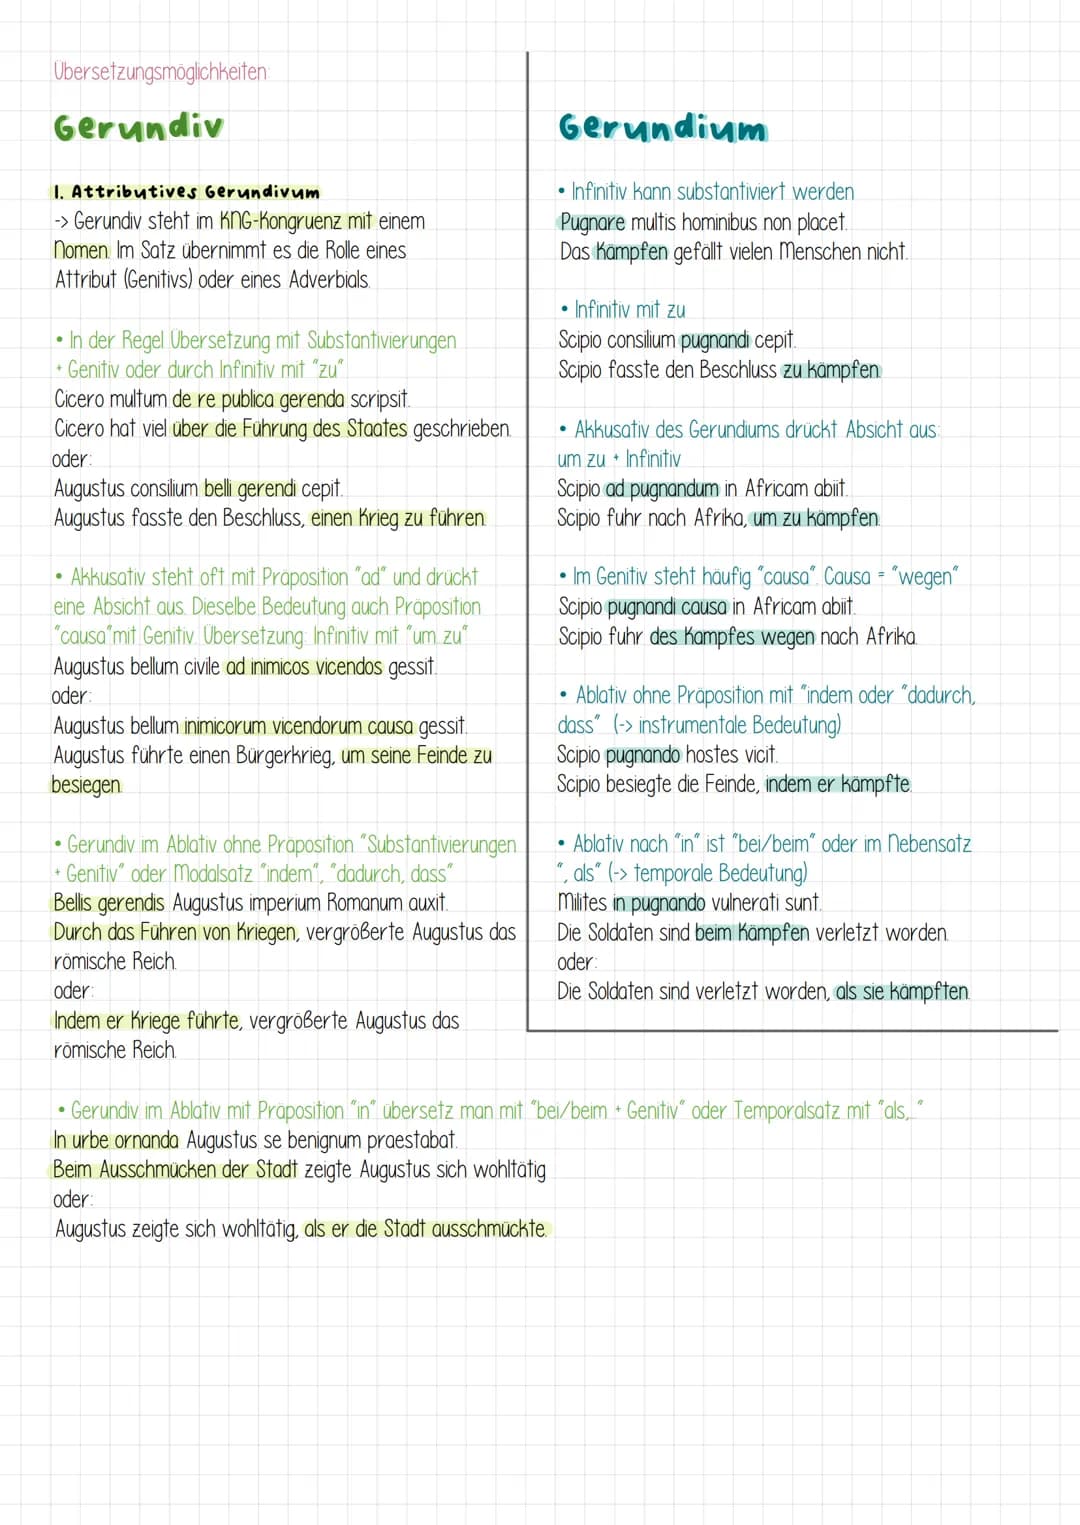 Übersetzungsmöglichkeiten:
Gerundiv
1. Attributives Gerundivum
-> Gerundiv steht im KNG-Kongruenz mit einem
Nomen. Im Satz übernimmt es die Rolle eines
Attribut (Genitivs) oder eines Adverbials.
• In der Regel Übersetzung mit Substantivierungen
+ Genitiv oder durch Infinitiv mit "zu"
Cicero multum de re publica gerenda scripsit.
Cicero hat viel über die Führung des Staates geschrieben.
oder:
Augustus consilium belli gerendi cepit.
Augustus fasste den Beschluss, einen Krieg zu führen.
• Akkusativ steht oft mit Präposition "ad" und drückt
eine Absicht aus. Dieselbe Bedeutung auch Präposition
"causa"mit Genitiv. Übersetzung: Infinitiv mit "um...zu"
Augustus bellum civile ad inimicos vicendos gessit.
oder:
Augustus bellum inimicorum vicendorum causa gessit.
Augustus führte einen Bürgerkrieg, um seine Feinde zu
besiegen.
• Gerundiv im Ablativ ohne Präposition "Substantivierungen
+ Genitiv" oder Modalsatz "indem", "dadurch, dass"
Bellis gerendis Augustus imperium Romanum auxit.
Durch das Führen von Kriegen, vergrößerte Augustus das
römische Reich.
oder:
Indem er Kriege führte, vergrößerte Augustus das
römische Reich.
• Gerundiv im Ablativ mit Präposition "in" übersetz man mit "bei/beim + Genitiv" oder Temporalsatz mit "als,..."
In urbe ornanda Augustus se benignum praestabat.
Beim Ausschmücken der Stadt zeigte Augustus sich wohltätig
oder:
Augustus zeigte sich wohltätig, als er die Stadt ausschmückte.
Gerundium
• Infinitiv kann substantiviert werden
Pugnare multis hominibus non placet.
Das Kämpfen gefällt vielen Menschen nicht.
• Infinitiv mit zu
Scipio consilium pugnandi cepit.
Scipio fasste den Beschluss zu kämpfen.
• Akkusativ des Gerundiums drückt Absicht aus:
um zu + Infinitiv
Scipio ad pugnandum in Africam abiit.
Scipio fuhr nach Afrika, um zu kämpfen.
• Im Genitiv steht häufig "causa". Causa = "wegen"
Scipio pugnandi causa in Africam abiit.
Scipio fuhr des Kampfes wegen nach Afrika.
• Ablativ ohne Präposition mit "indem oder "dadurch,
dass" (-> instrumentale Bedeutung)
Scipio pugnando hostes vicit.
Scipio besiegte die Feinde, indem er kämpfte.
• Ablativ nach "in" ist "bei/beim" oder im Nebensatz
", als" (-> temporale Bedeutung)
Milites in pugnando vulnerati sunt.
Die Soldaten sind beim Kämpfen verletzt worden.
oder:
Die Soldaten sind verletzt worden, als sie kämpften.